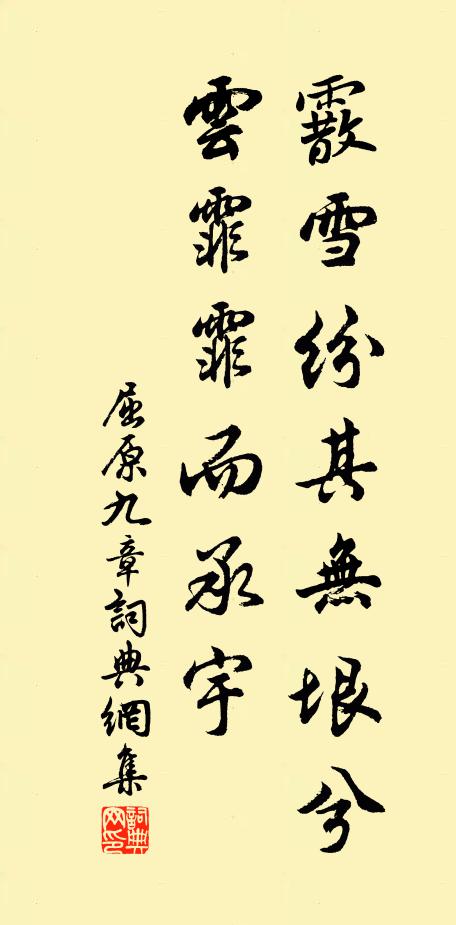 霰雪紛其無垠兮
雲霏霏而承宇
屈原九章詞典網集
詞典網印